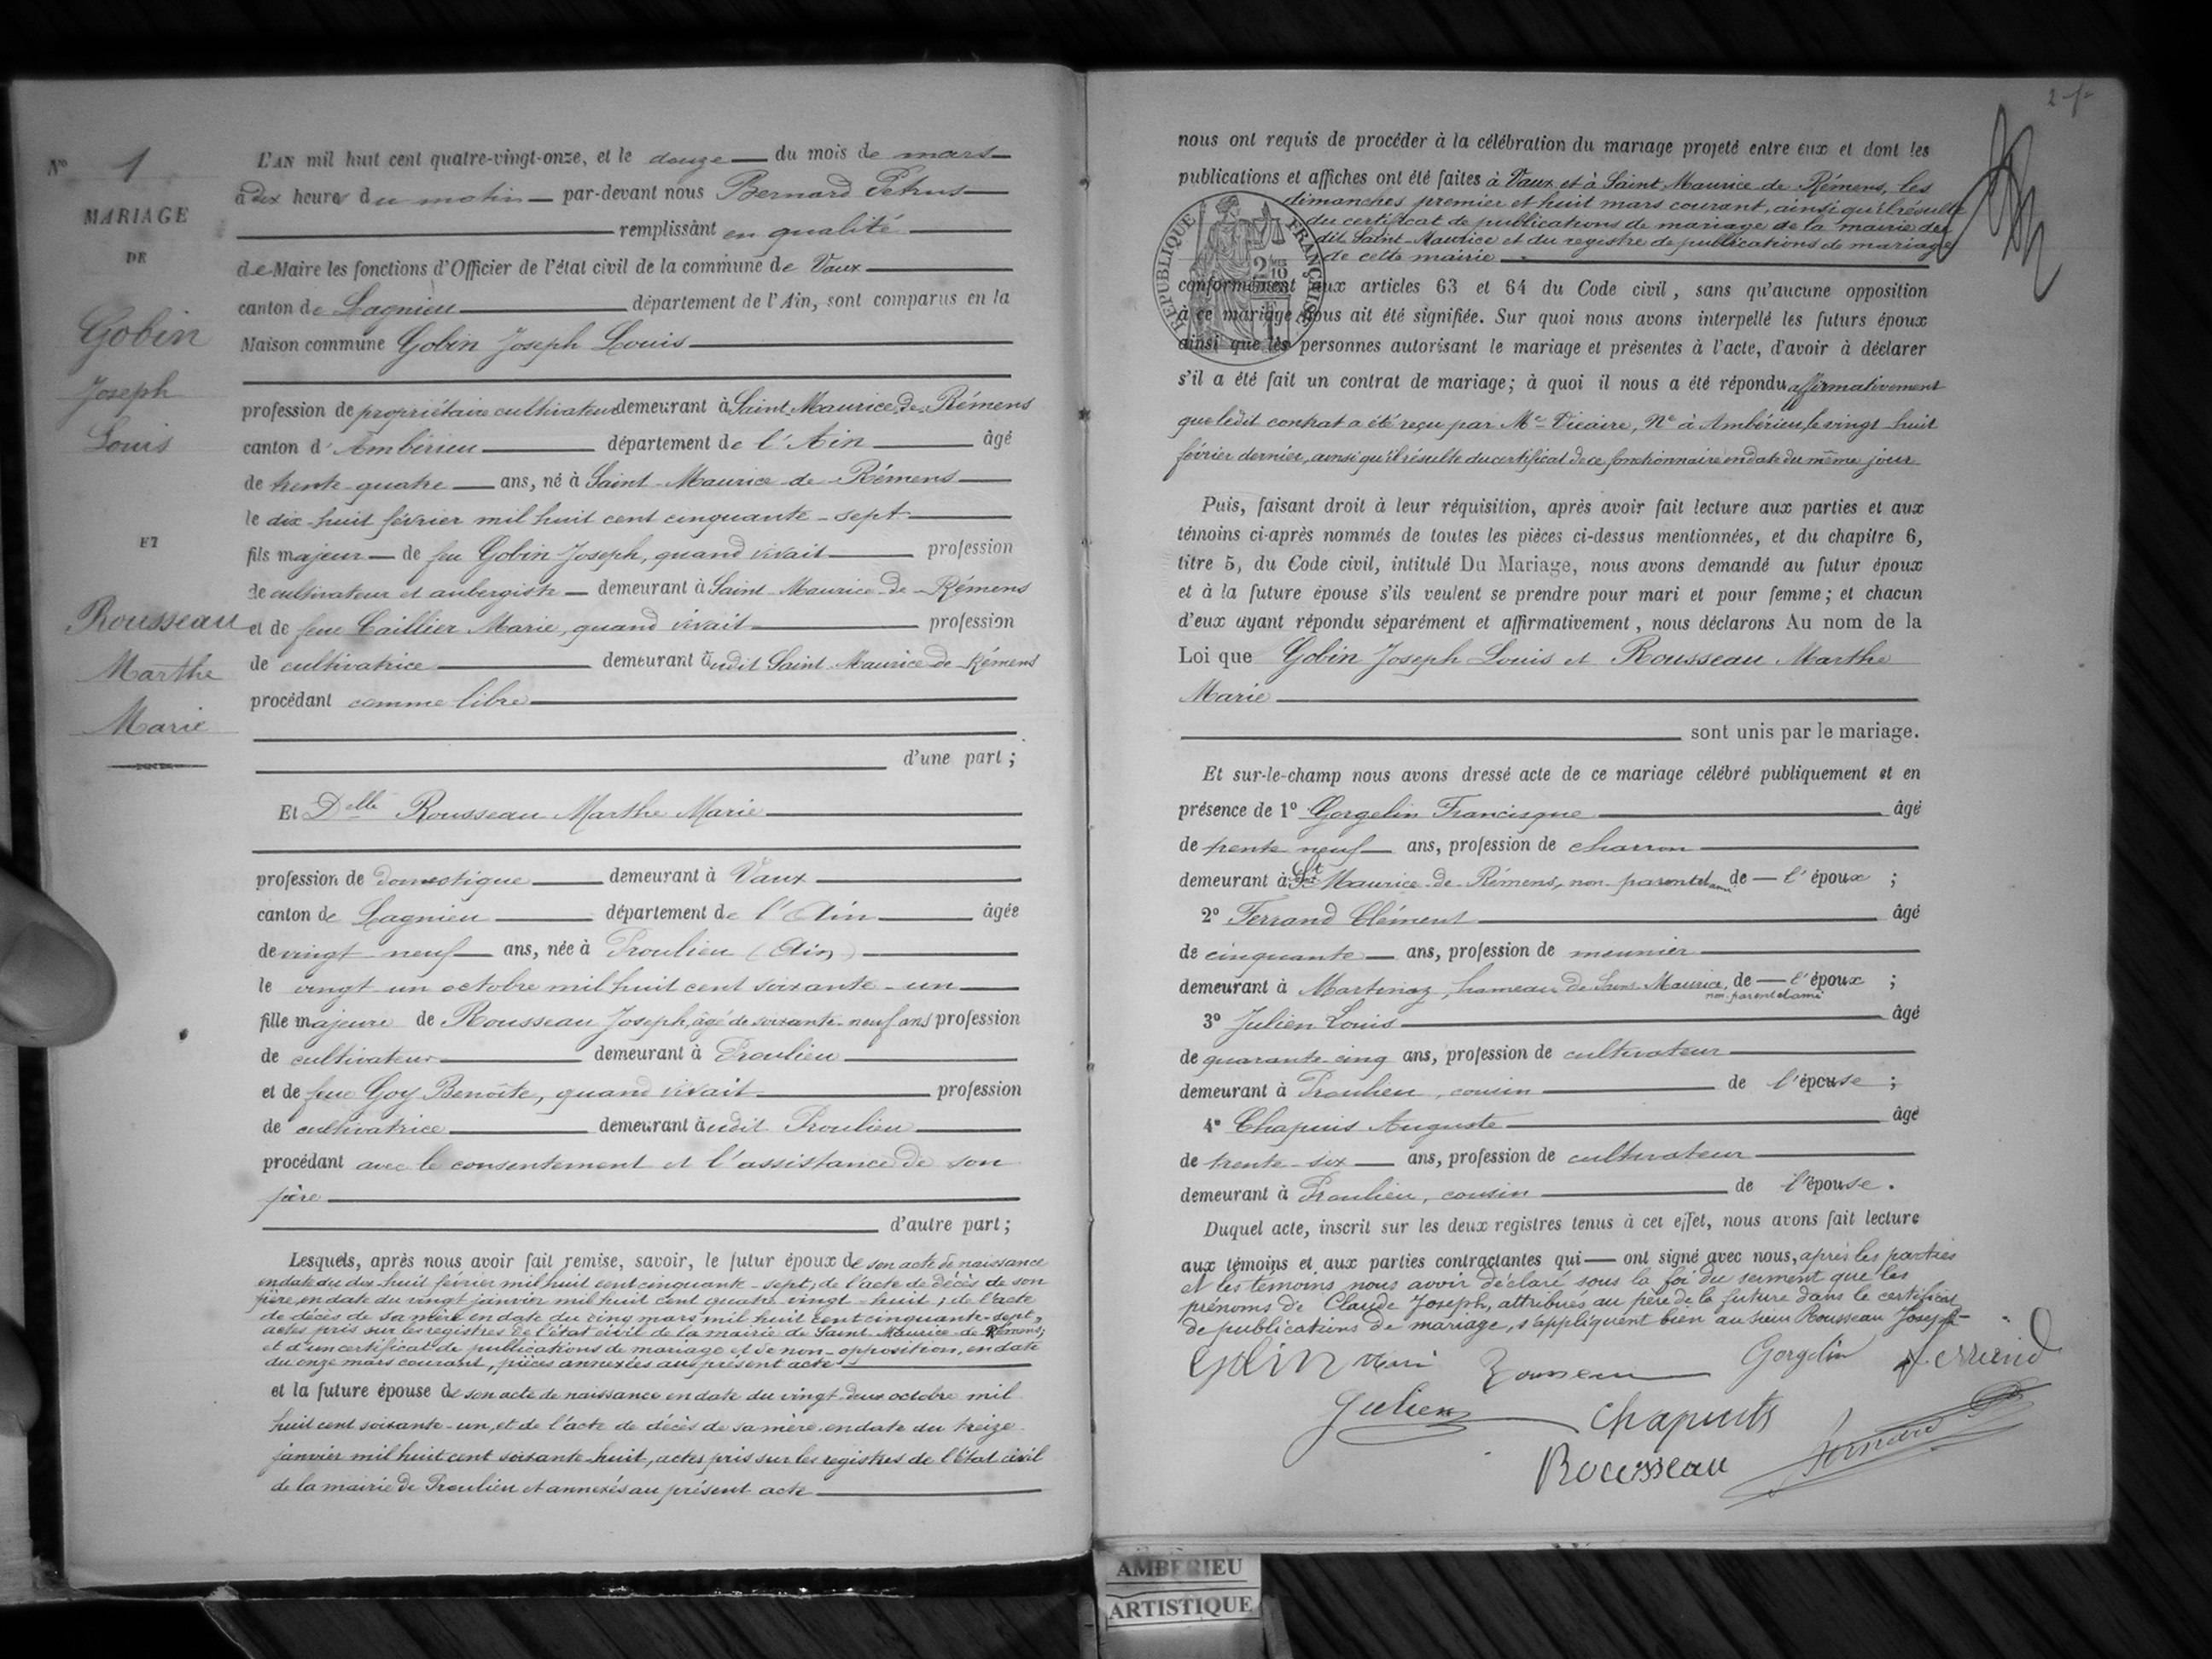 N° 1
MARIAGE
DE
Gobin
Joseph
Louis
ET
Rousseau
Marthe
Marie
L'AN mil huit cent quatre-vingt-onze, et le douze du mois de mars
à dix heures du matin par-devant nous Bernard Petrus
remplissant en qualité
de Maire les fonctions d'Officier de l'état civil de la commune de Vaux
canton de Lagnieu département de l'Ain, sont comparus en la
Maison commune Gobin Joseph Louis
profession de propriétaire cultivateur demeurant à Saint Maurice de Rémens
canton d'Ambérieu département de l'Ain âgé
de trente quatre ans, né à Saint-Maurice-de-Rémens
le dix-huit février mil huit cent cinquante-sept
fils majeur de feu Gobin Joseph, quand vivait profession
de cultivateur et aubergiste demeurant à Saint-Maurice-de-Rémens
et de feue Caillier Marie, quand vivait profession
de cultivatrice demeurant audit Saint-Maurice-de-Rémens
procédant comme libre
d'une part ;
Et Delle Rousseau Marthe Marie
profession de domestique demeurant à Vaux
canton de Lagnieu département de l'Ain âgée
de vingt-neuf ans, née à Proulieu (Ain)
le vingt un octobre mil huit cent soixante-un
fille majeure de Rousseau Joseph, âgé de soixante-neuf ans profession
de cultivateur demeurant à Proulieu
et de feue Goy Benoîte, quand vivait profession
de cultivatrice demeurant audit Proulieu
procédant avec le consentement et l'assistance de son
père
d'autre part ;
Lesquels, après nous avoir fait remise, savoir, le futur époux de son acte de naissance
en date du dix-huit février mil huit cent cinquante-sept, de l'acte de décès de son
père, en date du vingt janvier mil huit cent quatre-vingt-huit ; de l'acte
de décès de sa mère en date du cinq mars mil huit cent cinquante-sept,
actes pris sur les registres de l'état civil de la mairie de Saint-Maurice-de-Rémens;
et d'un certificat de publications de mariage et de non-opposition, en date
du onze mars courant, pièces annexées au présent acte
et la future épouse de son acte de naissance en date du vingt-deux octobre mil
huit cent soixante-un, et de l'acte de décès de sa mère en date du treize
janvier mil huit cent soixante-huit, actes pris sur les registres de l'état civil
de la mairie de Proulieu et annexés au présent acte
nous ont requis de procéder à la célébration du mariage projeté entre eux et dont les
publications et affiches ont été faites à Vaux et à Saint-Maurice-de-Rémens, les
dimanches premier et huit mars courant, ainsi qu'il résulte
du certificat de publications de mariage de la mairie du
dit Saint-Maurice et du registre de publications de mariage
de cette mairie
RÉPUBLIQUE FRANÇAISE
conformément aux articles 63 et 64 du Code civil, sans qu'aucune opposition
à ce mariage nous ait été signifiée. Sur quoi nous avons interpellé les futurs époux
ainsi que les personnes autorisant le mariage et présentes à l'acte, d'avoir à déclarer
s'il a été fait un contrat de mariage; à quoi il nous a été répondu affirmativement
que ledit contrat a été reçu par Me Vicaire, Ne à Ambérieu, le vingt-huit
février dernier, ainsi qu'il résulte du certificat de ce fonctionnaire en date du même jour
Puis, faisant droit à leur réquisition, après avoir fait lecture aux parties et aux
témoins ci-après nommés de toutes les pièces ci-dessus mentionnées, et du chapitre 6,
titre 5, du Code civil, intitulé Du Mariage, nous avons demandé au futur époux
et à la future épouse s'ils veulent se prendre pour mari et pour femme ; et chacun
d'eux ayant répondu séparément et affirmativement, nous déclarons Au nom de la
Loi que Gobin Joseph Louis et Rousseau Marthe
Marie
sont unis par le mariage.
Et sur-le-champ nous avons dressé acte de ce mariage célébré publiquement et en
présence de 1° Gorgelin Francisque âgé
de trente neuf ans, profession de charron
demeurant à St Maurice-de-Rémens, non parent et ami de l'époux ;
2° Ferrand Clément âgé
de cinquante ans, profession de meunier
demeurant à Martinaz, hameau de Saint-Maurice, non parent et ami de l'époux ;
3° Julien Louis âgé
de quarante-cinq ans, profession de cultivateur
demeurant à Proulieu, cousin de l'épouse ;
4° Chapuis Auguste âgé
de trente-six ans, profession de cultivateur
demeurant à Proulieu, cousin de l'épouse.
Duquel acte, inscrit sur les deux registres tenus à cet effet, nous avons fait lecture
aux témoins et aux parties contractantes qui ont signé avec nous, après les parties
et les témoins nous avoir déclaré sous la foi du serment que les
prénoms de Claude Joseph, attribués au père de la future dans le certificat
de publications de mariage, s'appliquent bien au sieur Rousseau Joseph
Gobin Rousseau Gorgelin Ferrand
Julien Chapuis
Rousseau Bernard
AMBERIEU
ARTISTIQUE